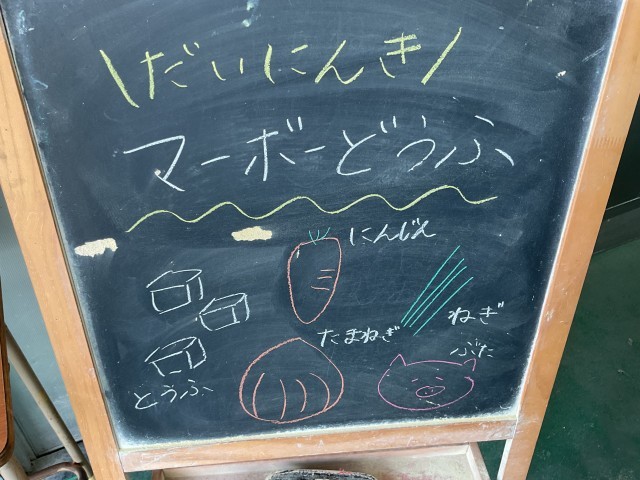 \だいにんき/
マーボーどうふ
にんじん
ねぎ
たまねぎ
ぶた
どうふ